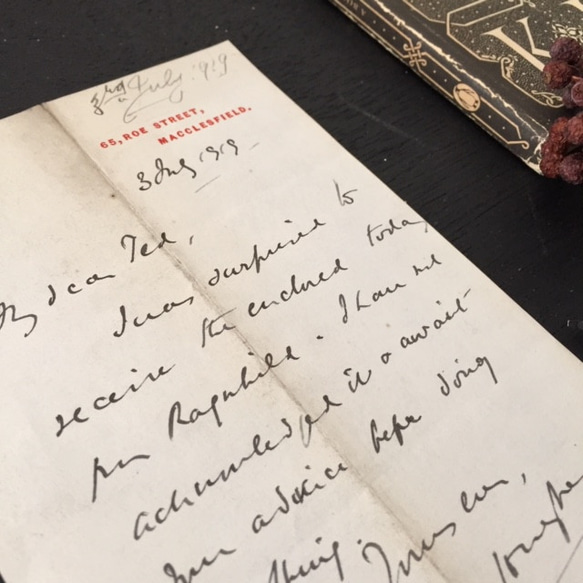 3rd July 1919
65, ROE STREET,
MACCLESFIELD.
3 July 1919
My dear Ted,
I was surprised to
receive the enclosed today
from Ragnhild. I have not
acknowledged it & await
your advice before doing
thing.
Yours ever,
K